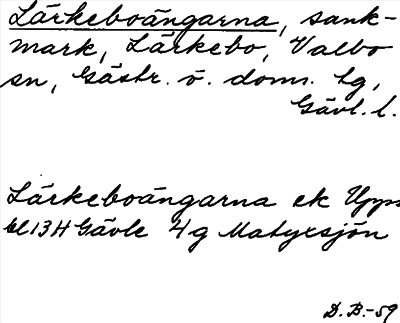 Lärkeboängarna, sank-
mark, Lärkebo, Valbo
sn, Gästr. ö. doms. tg,
Gävl. l.
Lärkeboängarna ek Upps
bl 13H Gävle 4g Matyxsjön
D. B.-59